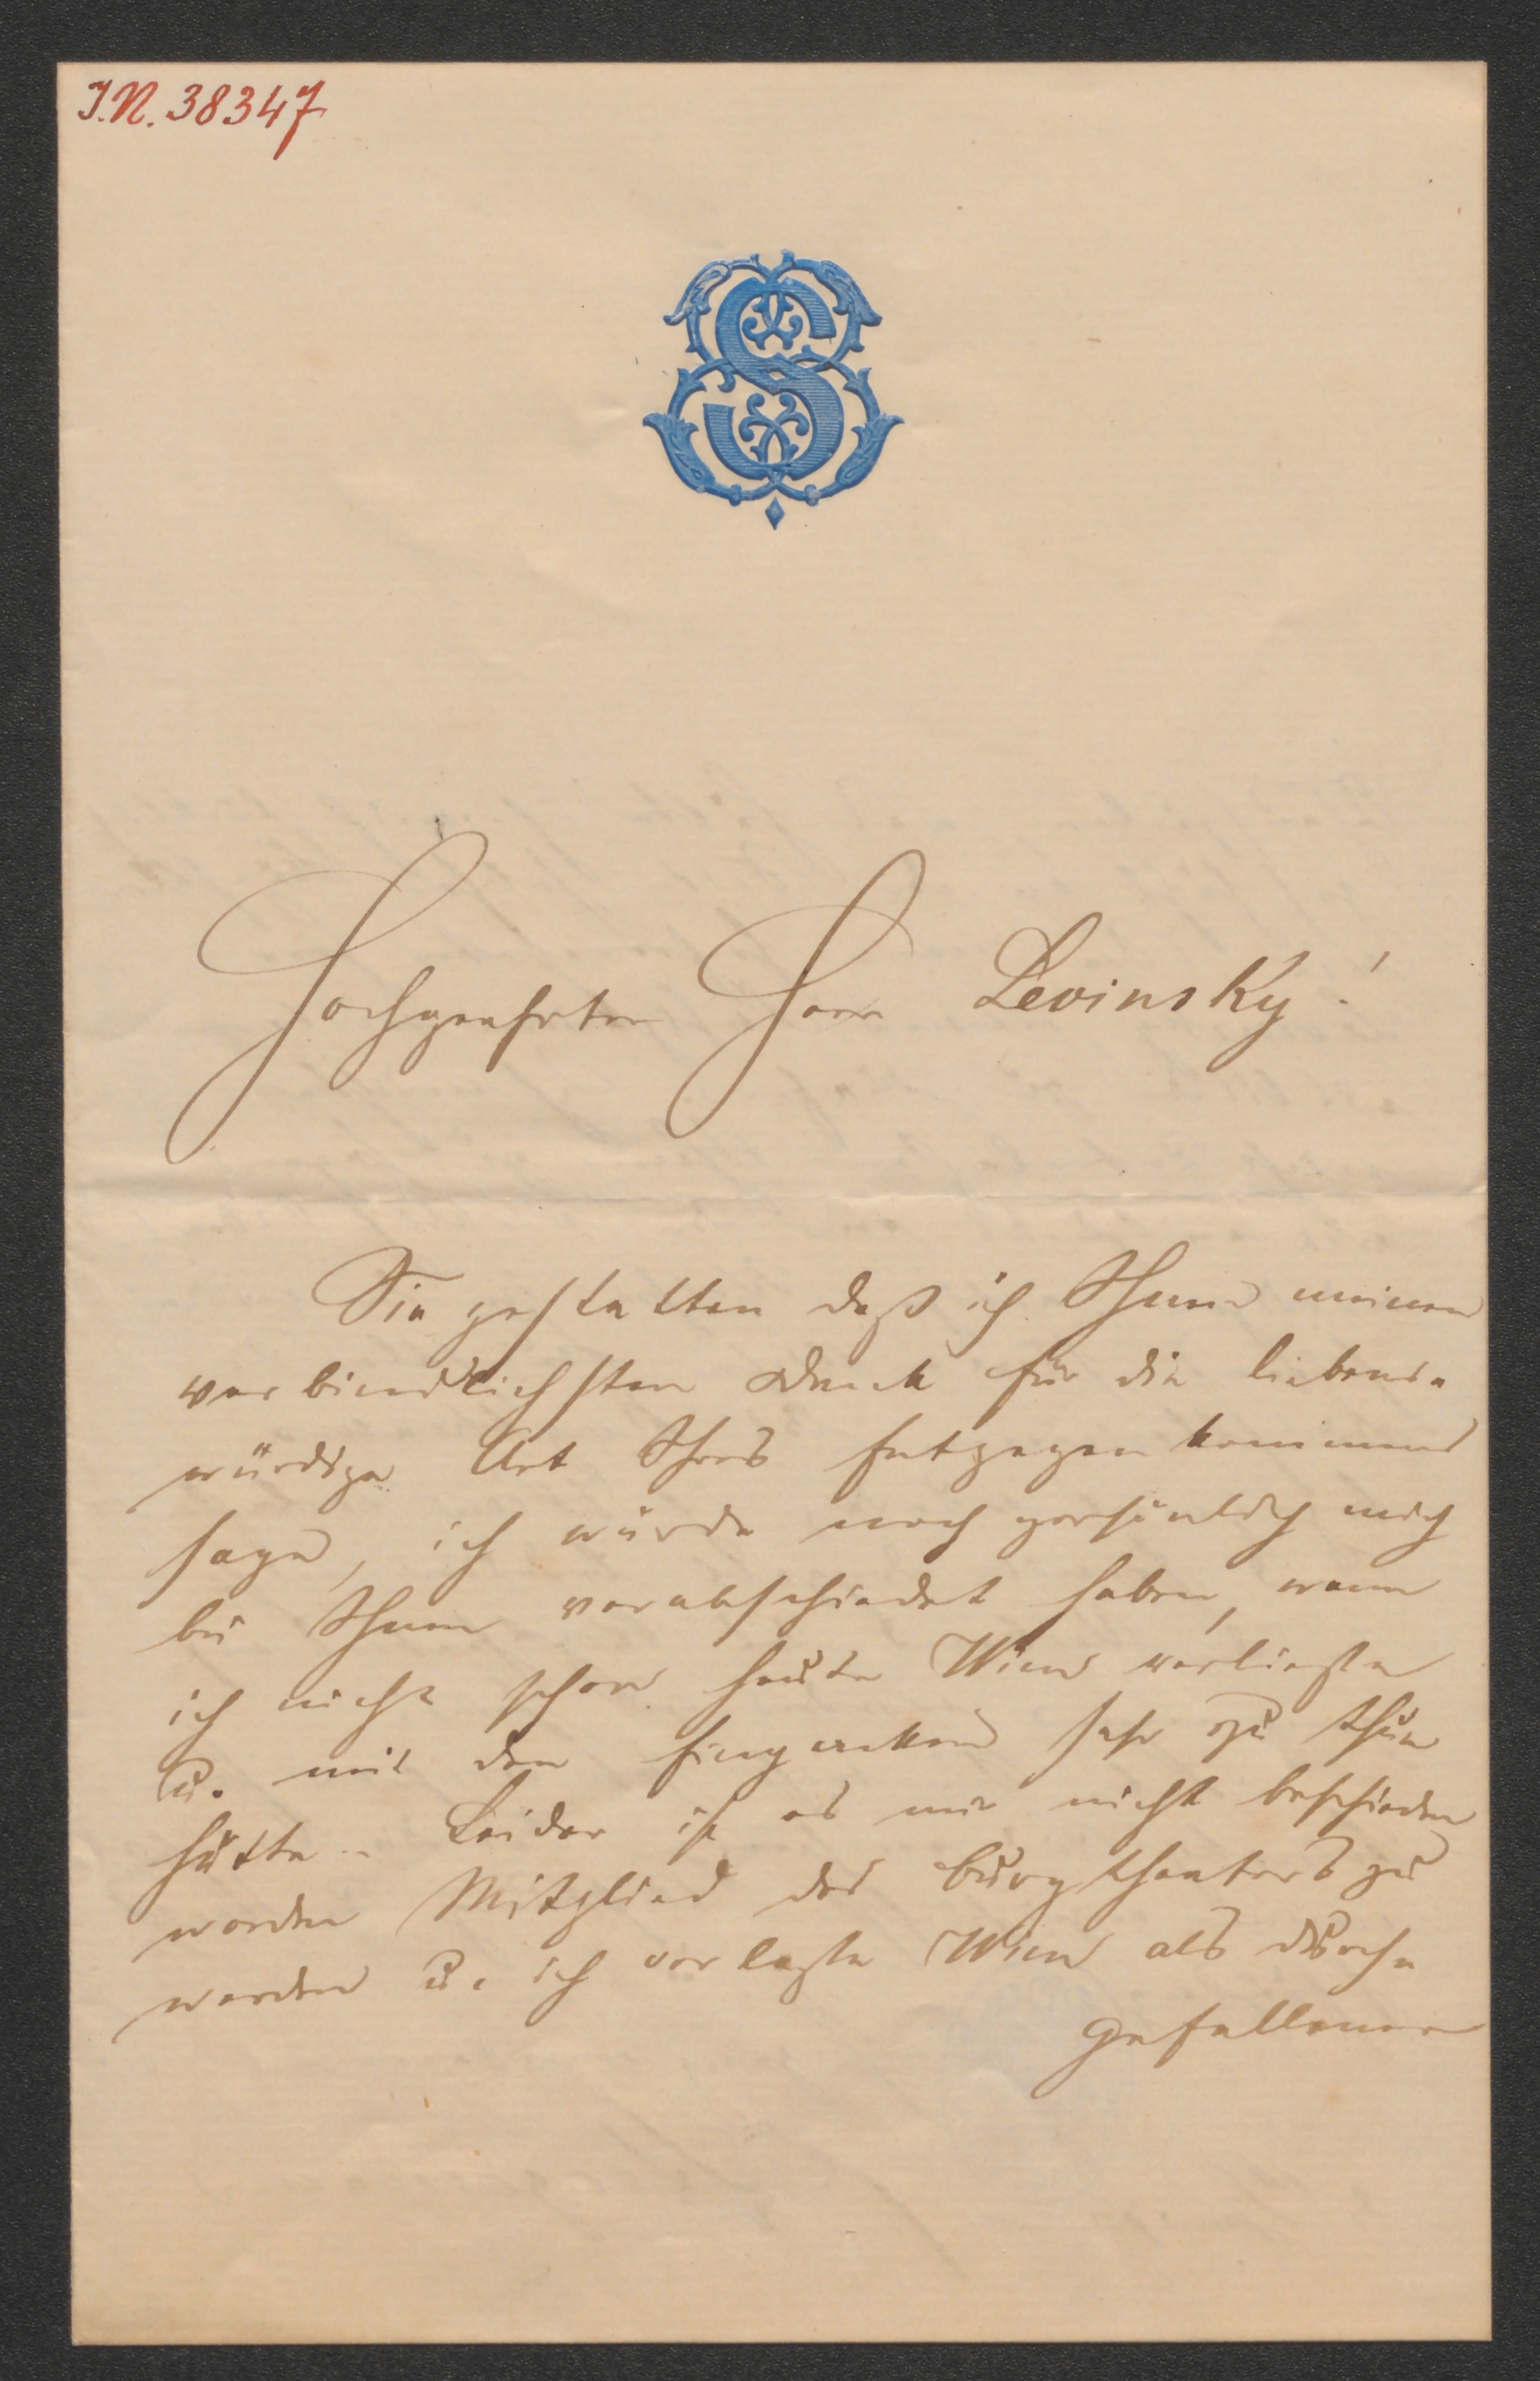 J.N. 38347
S
Hochgeehrter Herr Levinsky!
Sie gestatten daß ich Ihnen meinen
verbindlichsten Dank für die liebens-
würdige Art Ihres Entgegenkommens
sage, ich würde noch persönlich mich
bei Ihnen verabschiedet haben, wenn
ich nicht schon heute Wien verließe
u. mit dem Einpacken sehr zu thun
hätte. Leider ist es mir nicht beschieden
worden Mitglied des Burgtheaters zu
werden u. ich verlaße Wien als durch-
gefallener